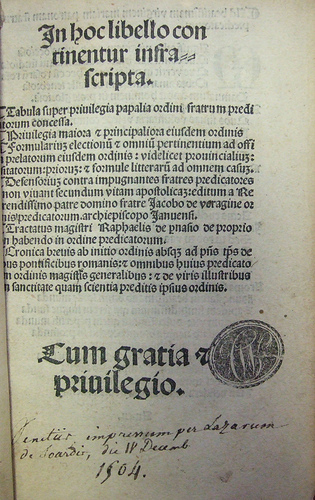 In hoc libello con
tinentur infra=
scripta.
Tabula super privilegia papalia ordini fratrum predi
atorum concessa.
Privilegia maiora ⁊ principaliora eiusdem ordinis
Formularius electionū ⁊ omniū pertinentium ad offi
prelatorum eiusdem ordinis: videlicet provincialiuz:
sitatorum: priorum: ⁊ formule litterarū ad omnem casuz.
Defensorius contra impugnantes fratres predicatores
non vivant secundum vitam apostolicaz: editum a Re
rendissimo patre domino fratre Jacobo de voragine or
nis predicatorum. archiepiscopo Januensi.
Tractatus magistri Raphaelis de pnasio de proprio
n habendo in ordine predicatorum.
Cronica brevis ab initio ordinis absqz ad pn̄s tp̄s de
bus pontificibus romanis: ⁊ omnibus huius predicato
m ordinis magistris generalibus: ⁊ de viris illustribus
n sanctitate quam scientia preditis ipsius ordinis.
Cum gratia ⁊
privilegio.
Venetiis impressum per Lazarum
de Soardis, die Decemb
1504.